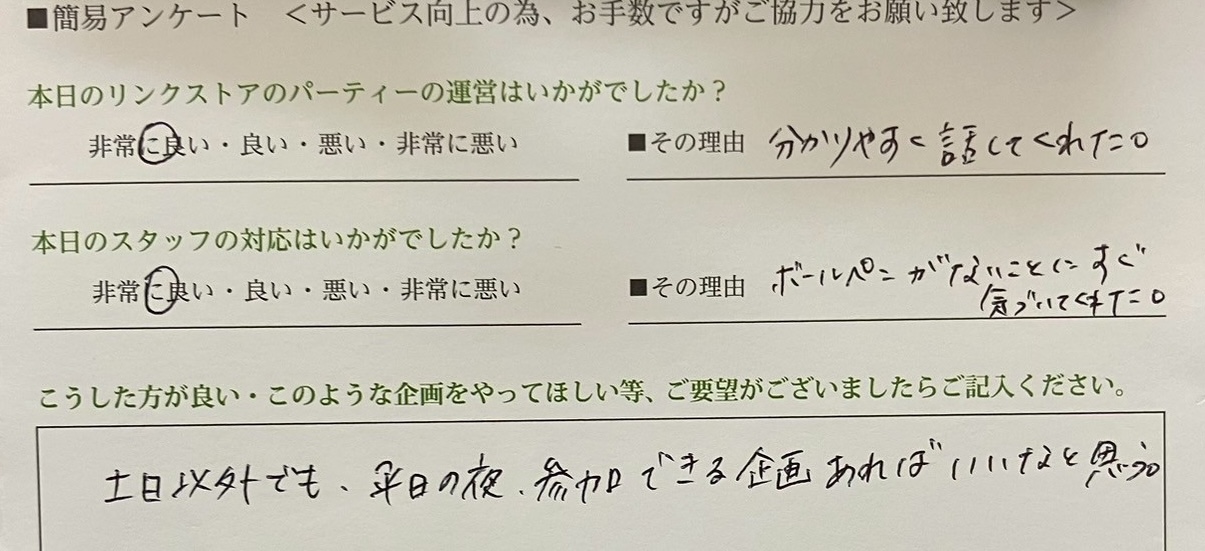 ■簡易アンケート　＜サービス向上の為、お手数ですがご協力をお願い致します＞
本日のリンクストアのパーティーの運営はいかがでしたか？
非常に良い・良い・悪い・非常に悪い　■その理由　分かりやすく話してくれた。
本日のスタッフの対応はいかがでしたか？
非常に良い・良い・悪い・非常に悪い　■その理由　ボールペンがないことにすぐ
気づいてくれた。
こうした方が良い・このような企画をやってほしい等、ご要望がございましたらご記入ください。
土日以外でも、平日の夜、参加できる企画あればいいなと思う。